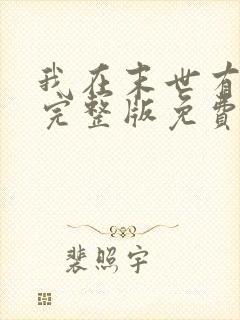 我在末世有
完整版免费
裴照宇